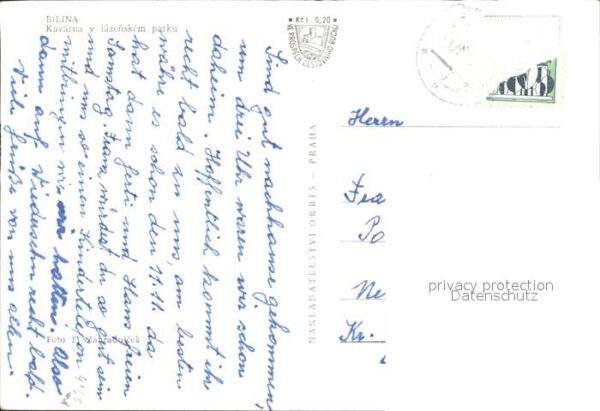 BÍLINA
Kavárna v lázeňském parku
Kčs 0,20
VE PROSPĚCH CESTOVNÍHO RUCHU
Sind gut nachhause gekommen,
um drei Uhr waren wir schon
daheim. Hoffentlich kommt ihr
recht bald zu uns, am besten
wäre es schon den 11.11. da
hat dann Gerti und Hans freien
Samstag. Franz würdest du so gut sein
und uns so einen Kindertelefon
mitbringen wie wir hatten. Also
dann auf Wiedersehn recht bald.
Viele Grüße von uns allen.
Foto
NAKLADATELSTVÍ ORBIS – PRAHA
Herrn
Fra
Po
Ne
Kr.
privacy protection
Datenschutz